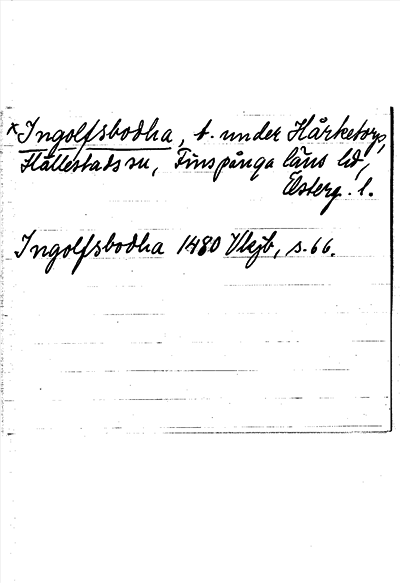 *Ingolfsbodha, t. under Hårketorp,
Hällestads sn, Finspånga läns hd,
Österg. l.
Ingolfsbodha 1480 Vkjb, s. 66.